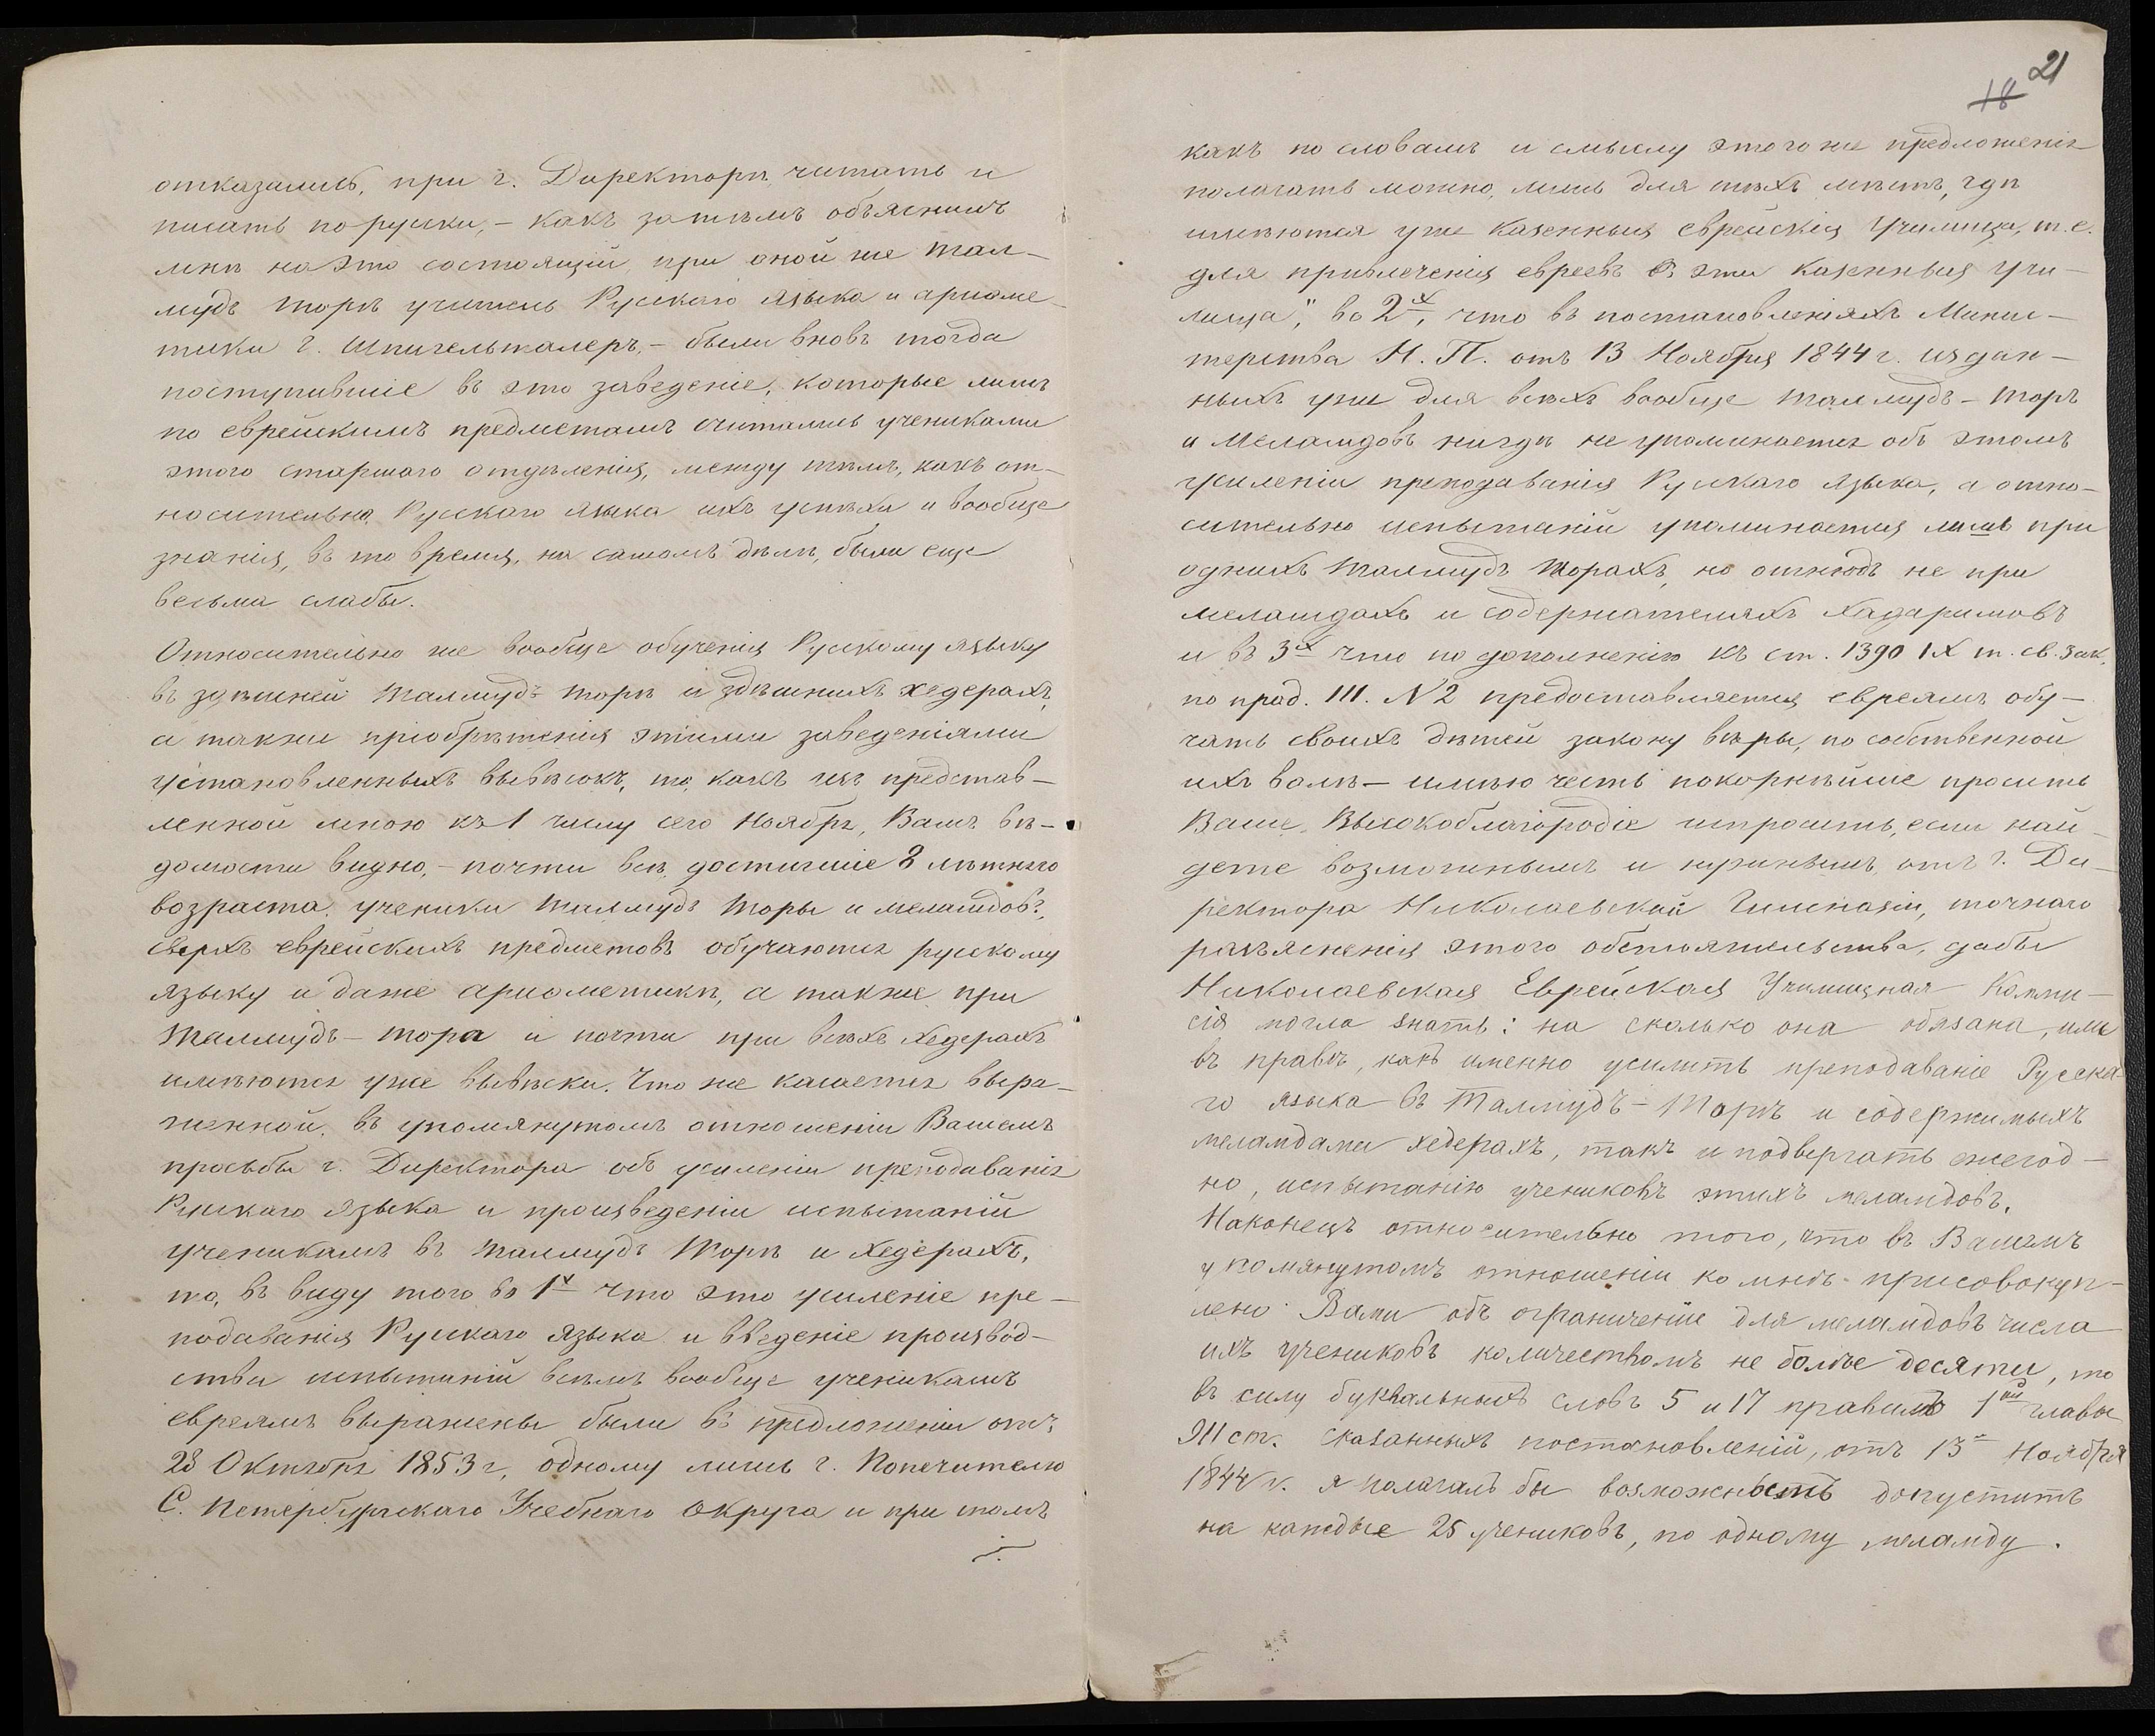 отказались, при г. Директорѣ читать и
писать по русски, – какъ затѣмъ объяснилъ
мнѣ на это состоящій при оной же тал–
мудъ торѣ учитель Русскаго языка и ариѳме–
тики г. Шпигельталеръ, – были вновь тогда
поступившіе въ это заведеніе, которые лишь
по еврейскимъ предметамъ считались учениками
этого старшаго отдѣленія, между тѣмъ, какъ от–
носительно Русскаго языка ихъ успѣхи и вообще
знанія, въ то время, на самомъ дѣлѣ, были еще
весьма слабы.
Относительно же вообще обученія Русскому языку
въ здѣшней талмудъ торѣ и здѣшнихъ хедерахъ,
а также пріобрѣтенія этими заведеніями
установленныхъ вывѣсокъ, то, какъ изъ представ–
ленной мною къ 1 числу сего Ноября, Вамъ вѣ–
домости видно, – почти всѣ, достигшіе 8 лѣтняго
возраста, ученики талмудъ торы и меламдовъ,
сверхъ еврейскихъ предметовъ обучаются русскому
языку и даже ариѳметикѣ, а также при
талмудъ – тора и почти при всѣхъ хедерахъ
имѣются уже вывѣски. Что же касается выра–
женной, въ упомянутомъ отношеніи Вашемъ
просьбы г. Директора объ усиленіи преподаванія
Русскаго языка и произведеніи испытаній
ученикамъ въ талмудъ торѣ и хедерахъ,
то, въ виду того во 1х что это усиленіе пре–
подаванія Русскаго языка и введеніе производ–
ства испытаній всѣмъ вообще ученикамъ
евреямъ выражены были въ предложеніи отъ
28 Октября 1853 г, одному лишь г. Попечителю
С. Петербургскаго Учебнаго Округа и при томъ
./.
18 21
какъ по словамъ и смыслу этого же предложенія
полагать можно, лишь для тѣхъ мѣстъ, гдѣ
имѣются уже Казенныя еврейскія Училища, т. е.
для привлеченія евреевъ въ эти Казенныя учи–
лища," во 2х, что въ постановленіяхъ Минис–
терства Н. П. отъ 13 Ноября 1844 г. издан–
ныхъ уже для всѣхъ вообще талмудъ – торъ
и Меламдовъ нигдѣ не упоминается объ этомъ
усиленіи преподаванія Русскаго языка, а отно–
сительно испытаній упоминается лишь при
однихъ талмудъ торахъ, но отнюдь не при
меламдахъ и содержателяхъ хадаримовъ
и въ 3х что по дополненію къ ст. 1390 IX т. св. Зак.
по прод. III. N 2 предоставляется евреямъ обу–
чать своихъ дѣтей закону вѣры, по собственной
ихъ волѣ – имѣю честь покорнѣйше просить
Ваше Высокоблагородіе испросить, если най–
дете возможнымъ и нужнымъ, отъ г. Ди–
ректора Николаевской Гимназіи, точнаго
разъясненія этого обстоятельства, дабы
Николаевская Еврейская Училищная Комми–
сія могла знать: на сколько она обязана, или
въ правѣ, какъ именно усилить преподаваніе Русска–
го языка въ Талмудъ – Торѣ и содержимыхъ
меламдами хедерахъ, такъ и подвергать ежегод–
но, испытанію учениковъ этихъ меламдовъ.
Наконецъ относительно того, что въ Вашемъ
упомянутомъ отношеніи ко мнѣ присовокуп–
лено Вами объ ограниченіе для меламдовъ числа
ихъ учениковъ количествомъ не болѣе десяти, то
въ силу буквальныхъ словъ 5 и 17 правилъ 1ой главы
911 ст. сказанныхъ постановленій, отъ 13го Ноября
1844 г. я полагалъ бы возможность допустить
на каждые 25 учениковъ, по одному меламду.